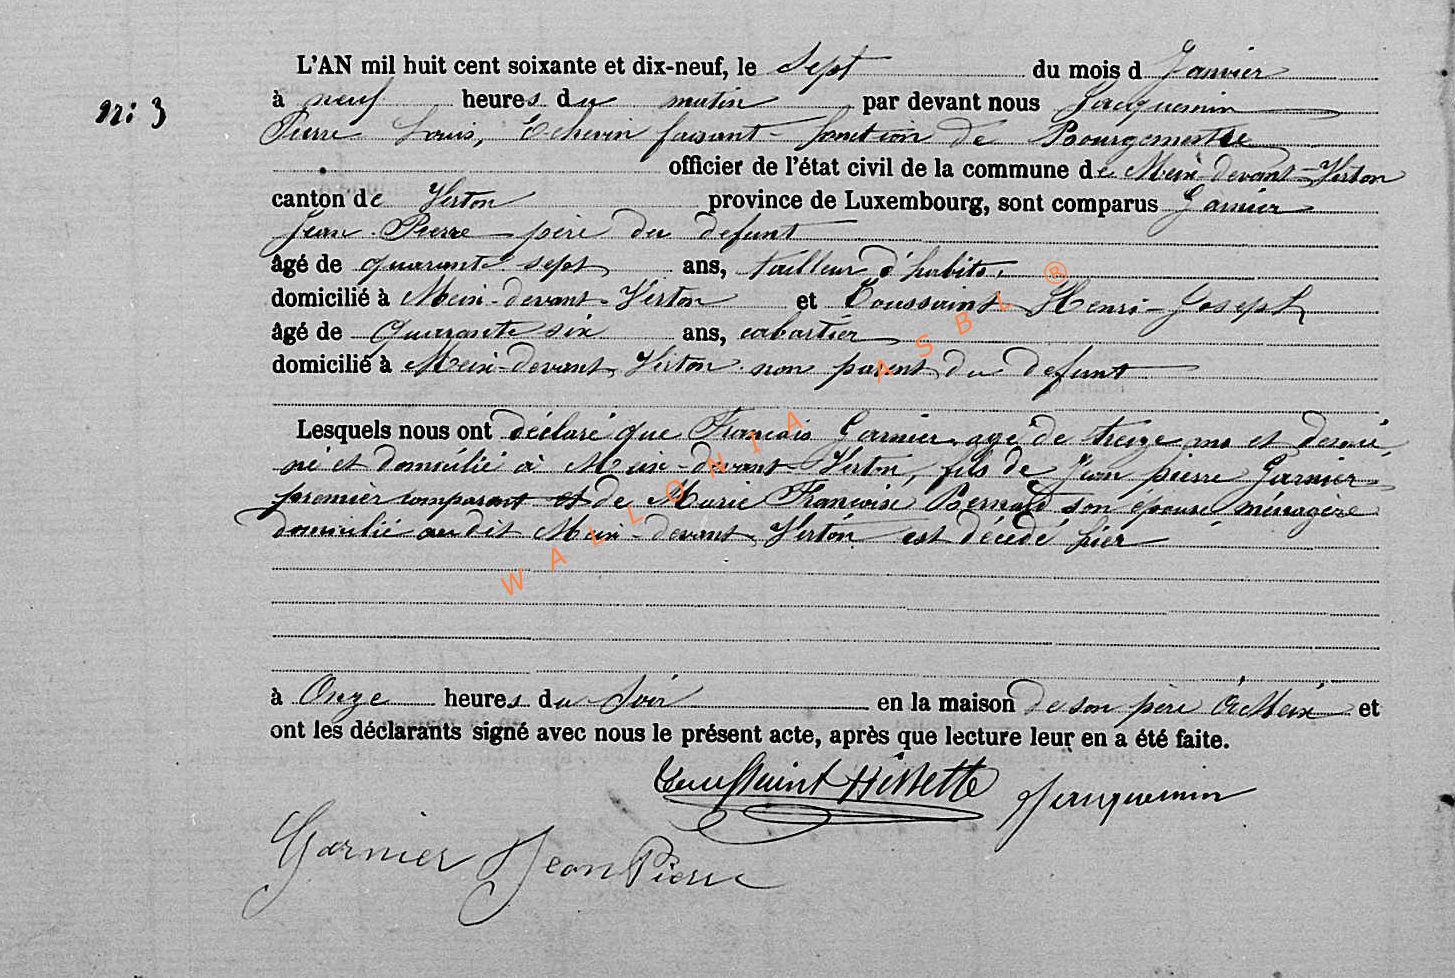 L'AN mil huit cent soixante et dix-neuf, le Sept du mois d Janvier
n: 3
à neuf heures du matin par devant nous Jacquemin
Pierre Louis, Echevin faisant fonction de Bourgemestre
officier de l'état civil de la commune de Meix-devant-Virton
canton de Virton province de Luxembourg, sont comparus Garnier
Jean Pierre père du defunt
âgé de quarante sept ans, tailleur d'habits,
domicilié à Meix-devant-Virton et Toussaint Henri-Joseph
âgé de Quarante six ans, cabartier
domicilié à Meix-devant Virton non parent du defunt
Lesquels nous ont déclaré que Francois Garnier agé de treize ans et demi,
né et domicilié à Meix-devant-Virton, fils de Jean pierre Garnier
premier comparant et de Marie Francoise Bernard son épouse ménagère
domicilié audit Meix-devant Virton est décédé hier
à Onze heures du Soir en la maison de son père à Meix et
ont les déclarants signé avec nous le présent acte, après que lecture leur en a été faite.
Toussaint Jacquemin
Garnier Jean Pierre
WALLONIA ASBL ®